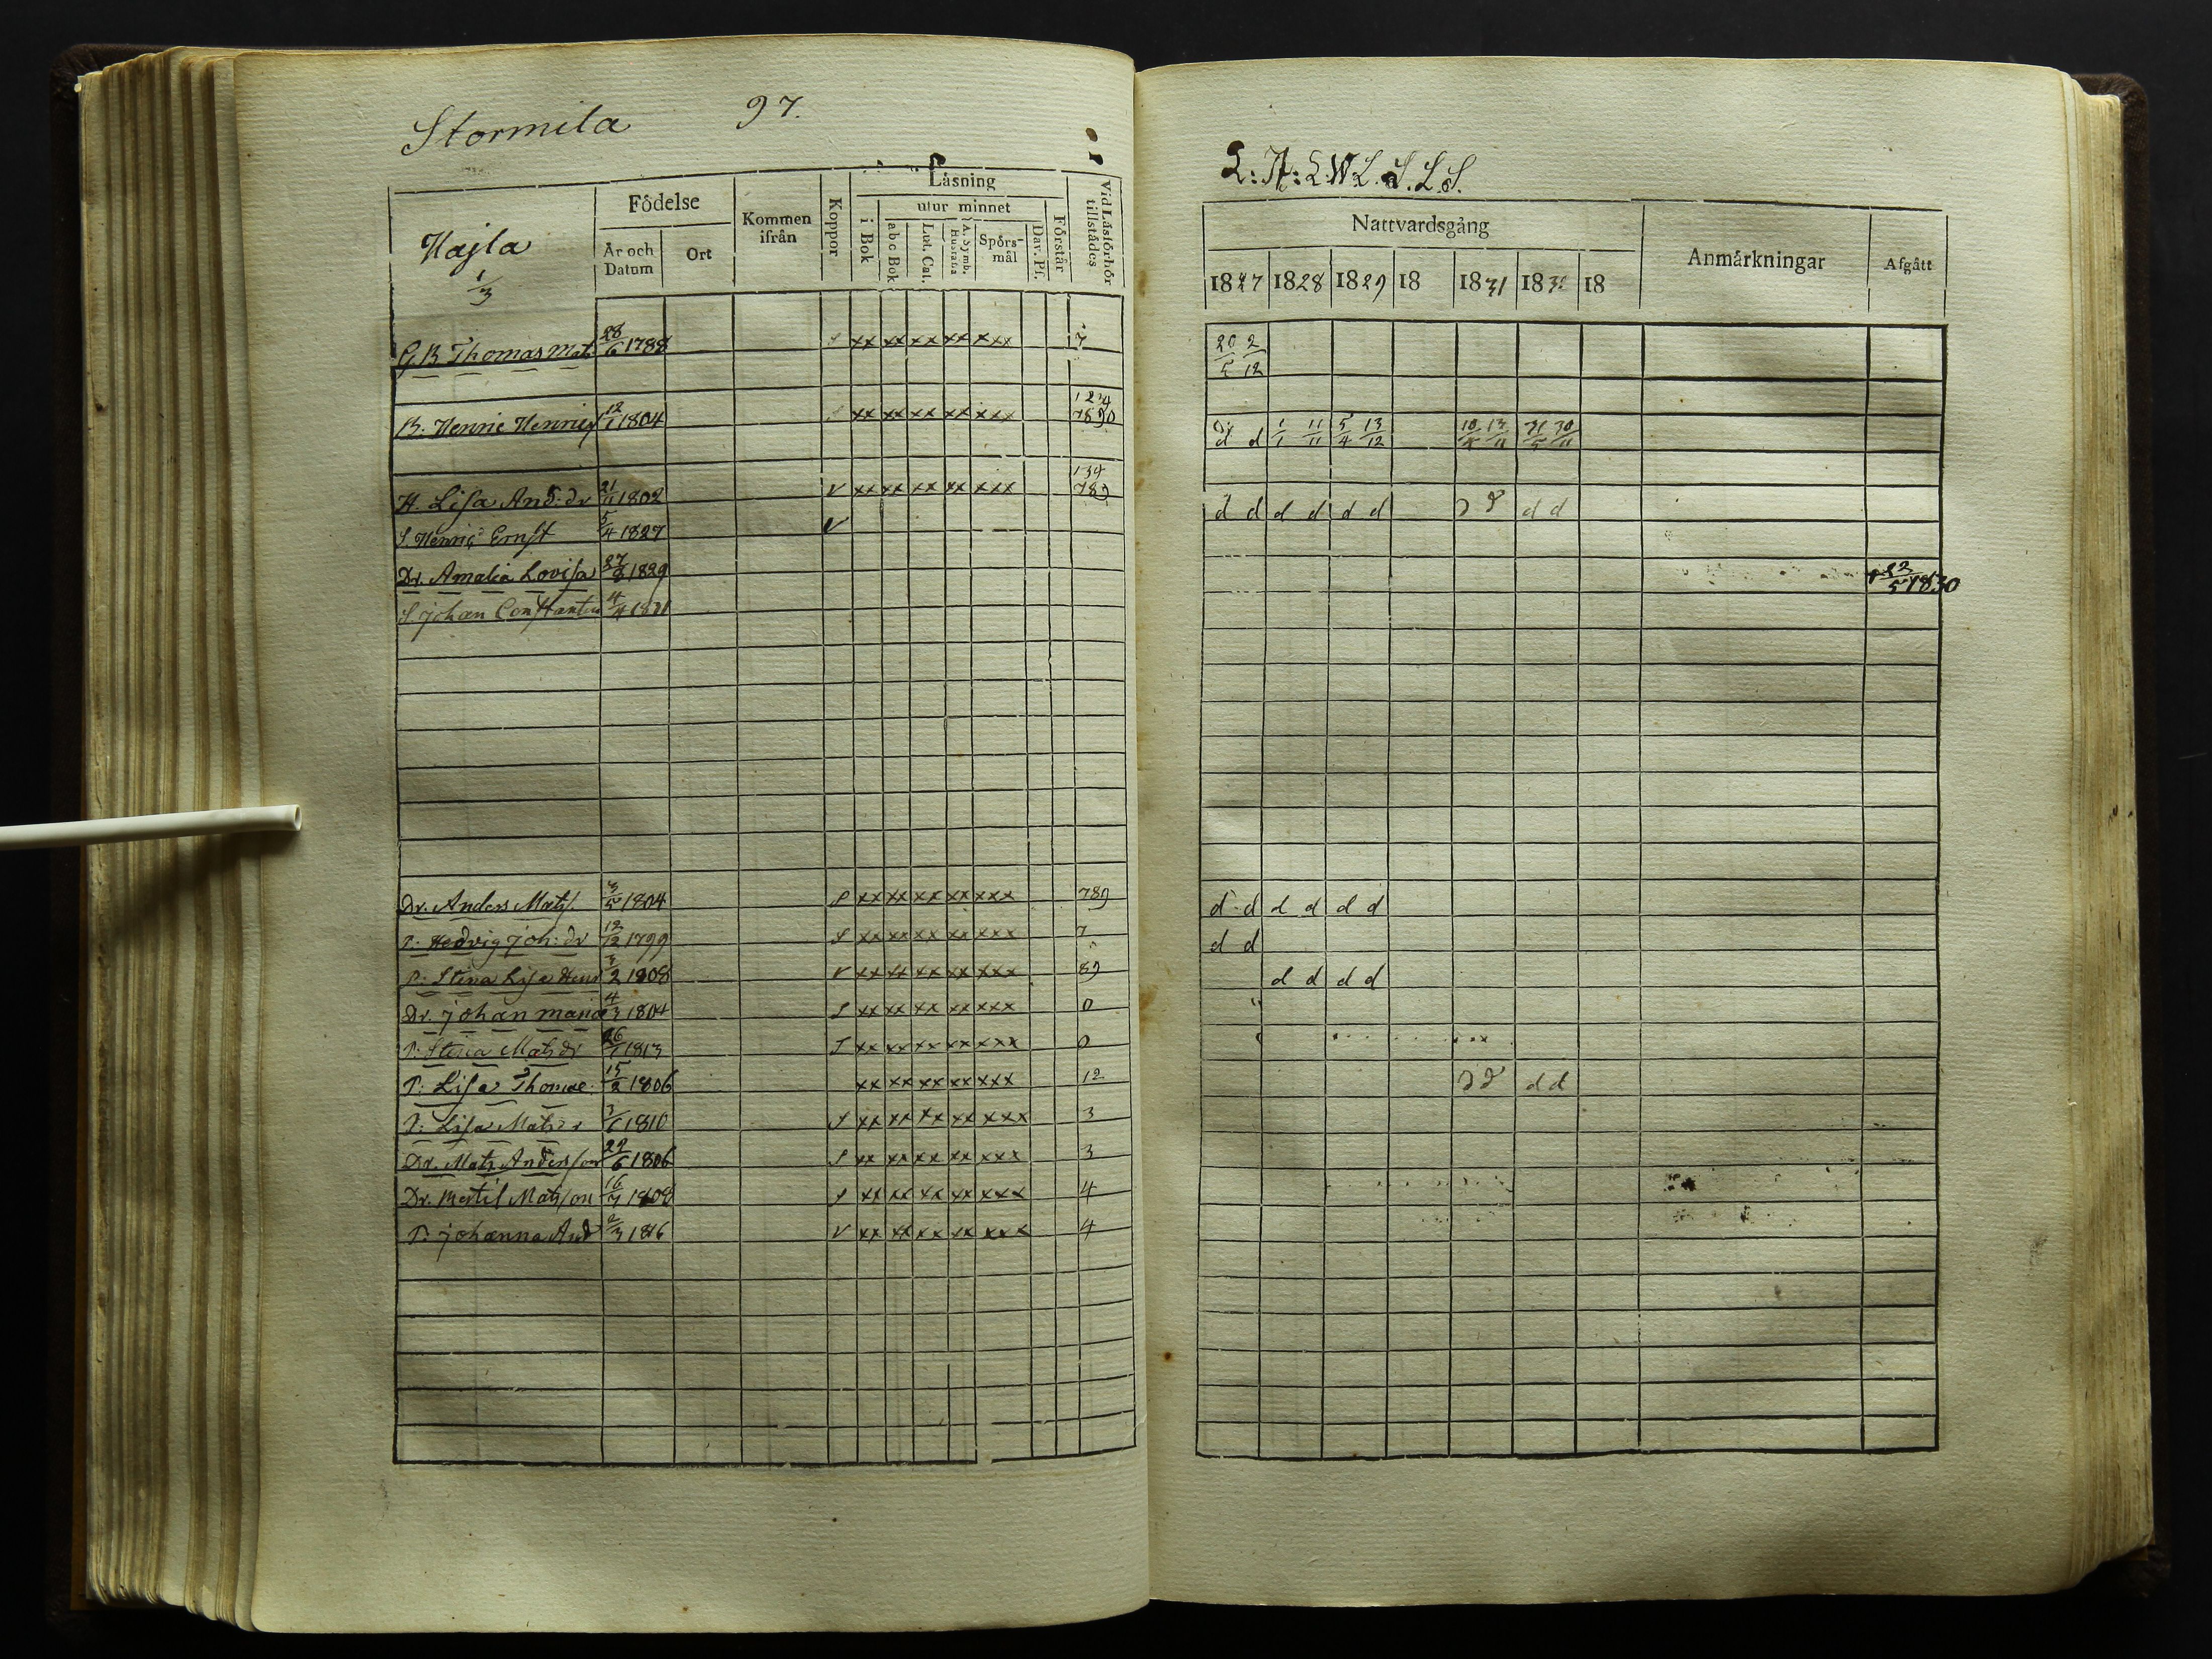 Stormila 97.
Hajla
1/3
Födelse
År och Datum
Ort
Kommen ifrån
Koppor
Läsning
i Bok
utur minnet
abc Bok
Lut. Cat.
A. Symb. Hustafla
Spörs-mål
Dav. Ps.
Förstår
Vid Läsförhör tillstädes
G.B. Thomas Mats 28/6 1788 S xx xx xx xx xxx 7
1234
B. Henric Henrics 12/1 1804 S xx xx xx xx xxx 7890
134
H. Lisa And: dr 21/11 1802 V xx xx xx xx xxx 789
S. Henric Ernst 5/4 1827 V
Dr. Amalia Lovisa 27/8 1829
S Johan Constantin 4/4 1831
Dr. Anders Mats 3/5 1804 S xx xx xx xx xxx 789
P. Hedvig Joh: dr 12/12 1799 S xx xx xx xx xxx 7
P: Stina Lisa Henr 3/2 1808 V xx xx xx xx xxx 89
Dr. Johan 4/3 1804 S xx xx xx xx xxx 0
P: Stina Mats dr 26/1 1813 xx xx xx xx xxx 0
P: Lisa Thomae 15/2 1806 xx xx xx xx xxx 12
P: Lisa Mats 1810 S xx xx xx xx xxx 3
Dr. Mats Andersson 22/6 1806 S xx xx xx xx xxx 3
Dr. Bertil Matsson 16/7 1808 S xx xx xx xx xxx 4
P: Johanna And 2/3 1816 V xx xx xx xx xxx 4
L: H: L.W.L. S. L. S.
Nattvardsgång
Anmärkningar
Afgått
1827 1828 1829 18 1831 1832 18
20/5 2/12
d d 1/1 11/11 5/4 13/12 10/4 13/11 31/5 30/11
d d d d d d d d d d
† 22/5 1830
d d d d d d
d d
d d d d
d d d d